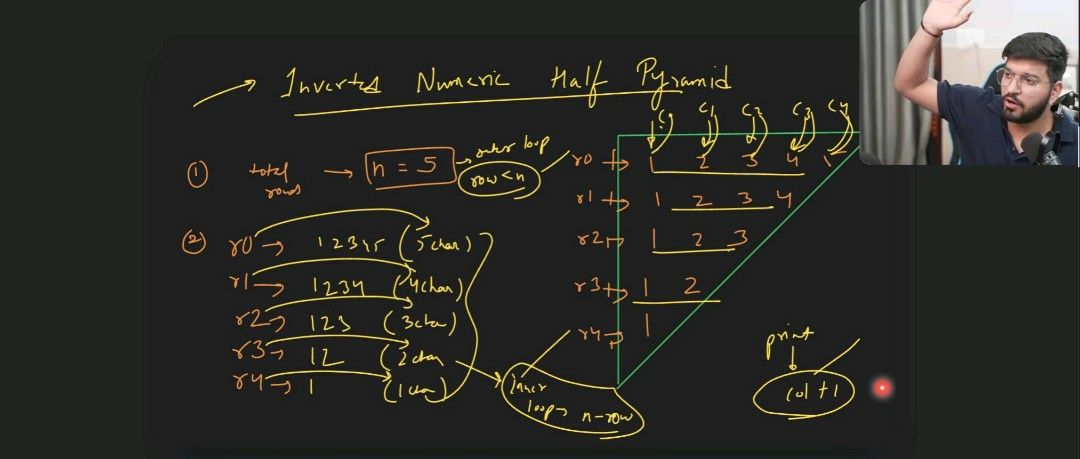 → Inverted Numeric Half Pyramid
① total rows → n = 5 → outer loop row < n
② r0 → 12345 (5 char)
r1 → 1234 (4 char)
r2 → 123 (3 char)
r3 → 12 (2 char
r4 → 1 (1 char)
Inner loop → n-row
C1 C2 C3 C4
r0 → 1 2 3 4
r1 → 1 2 3 4
r2 → 1 2 3
r3 → 1 2
r4 → 1
print
col + 1